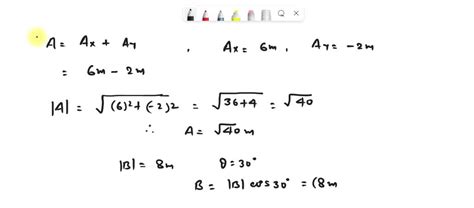 A = Ax + Ay , Ax = 6m , Ay = -2m
= 6m - 2m
|A| = √(6)²+(-2)2 = √36+4 = √40
∴ A = √40 m
|B| = 8m θ = 30°
B = |B| cos 30° = (8m